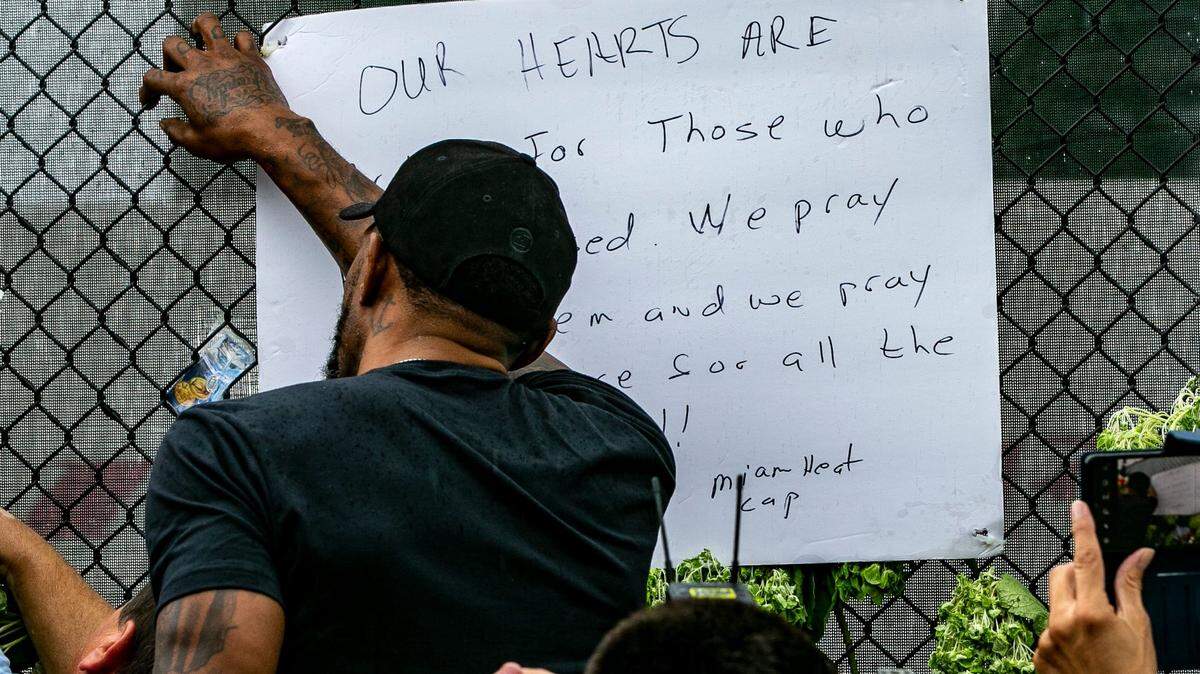 OUR HEARTS ARE
For Those who
ed. We pray
em and we pray
re for all the
!!
miam Heat
cap